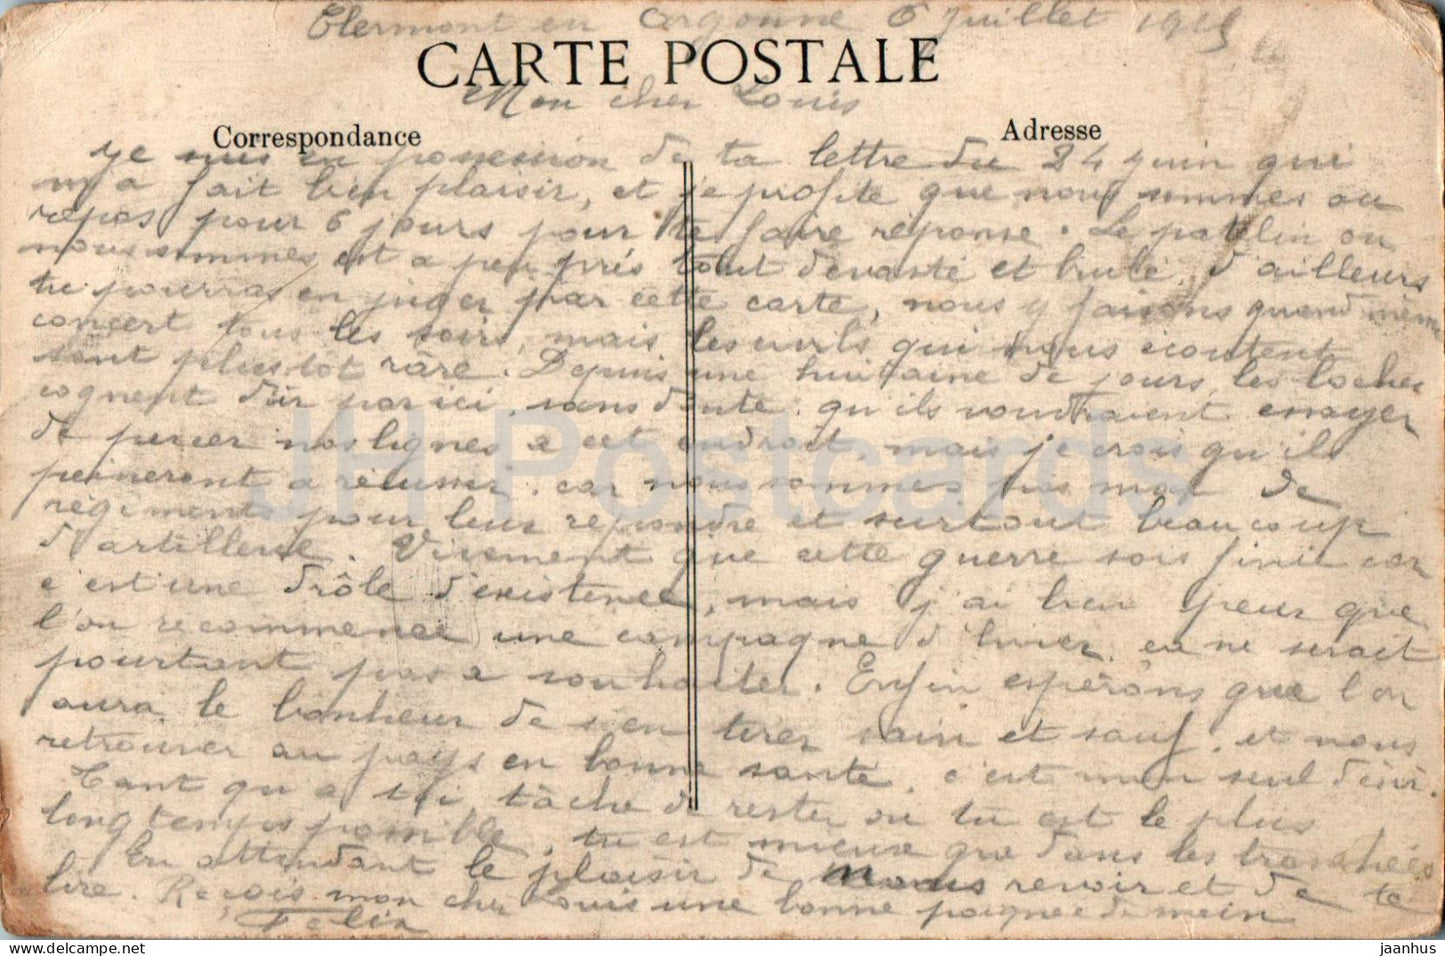 Clermont en Argonne 6 juillet 1915
CARTE POSTALE
Mon cher Louis
Correspondance
Adresse
Je suis en possession de ta lettre du 24 juin qui
m'a fait bien plaisir, et je profite que nous sommes au
repos pour 6 jours pour te faire réponse. Le patelin ou
nous sommes est a peu près tout devasté et brulé, d'ailleurs
tu pourras en juger par cette carte, nous y faisons quand même
concert tous les soirs, mais les civils qui nous écoutent
sont plustôt rare. Depuis une huitaine de jours, les boches
cognent dur par ici, sans doute qu'ils voudraient essayer
de percer nos lignes a cet endroit mais je crois qu'ils
peineront a réussir, car nous sommes pas mal de
régiments pour leur repondre et surtout beaucoup
d'artillerie. Vivement que cette guerre sois finie car
c'est une drôle d'existence, mais j'ai bien peur que
l'on recommence une campagne d'hiver, ça ne serait
pourtant pas a souhaiter. Enfin espérons que l'on
aura le bonheur de s'en tirer sain et sauf, et nous
retrouver au pays en bonne santé, c'est mon seul désir.
Tant qu'a toi, tâche de rester ou tu est le plus
longtemps possible, tu est mieux que dans les tranchées
En attendant le plaisir de nous revoir et de te
lire. Reçois mon cher Louis une bonne poignée de main
Felix
JH Postcards
jaanhus
www.delcampe.net